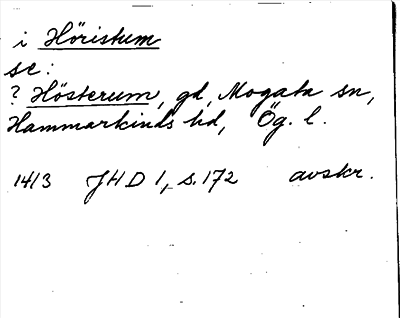 i Höristum
se:
? Hösterum, gd, Mogata sn,
Hammarkinds hd, Ög. l.
1413 JHD 1, s. 172 avskr.